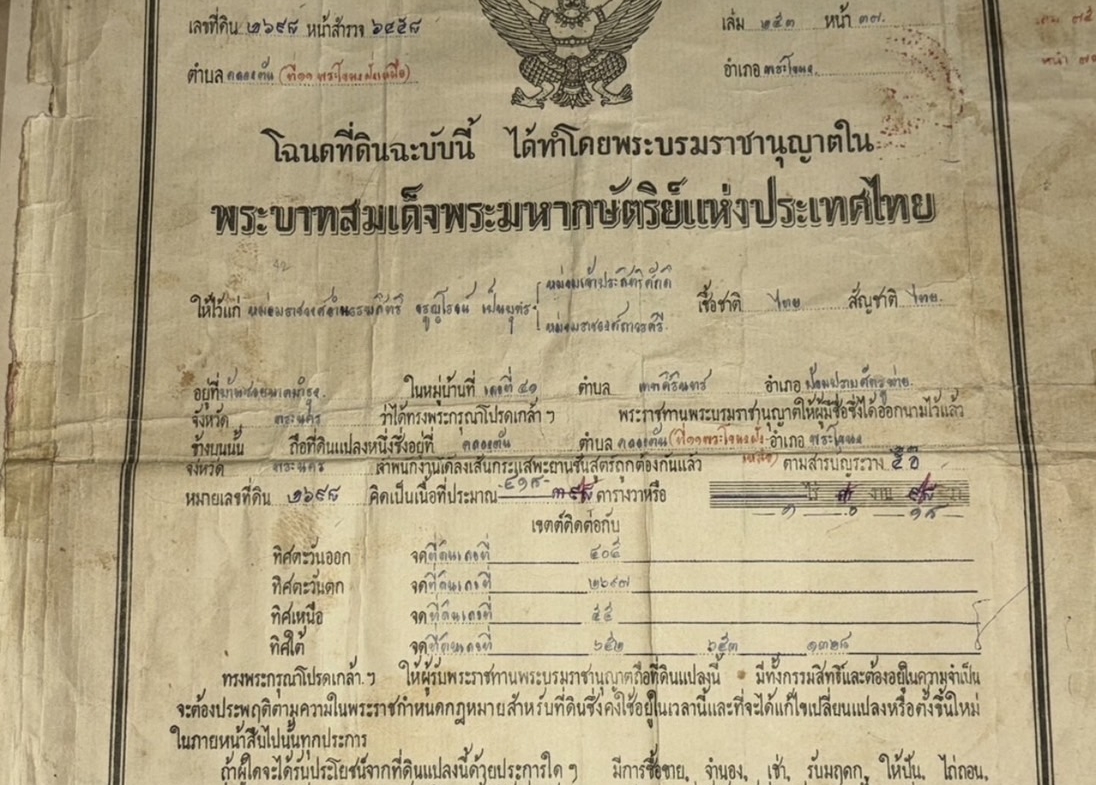 เลขที่ดิน ๒๖๙๘ หน้าสำรวจ ๖๔๕๘ เล่ม ๒๕๓ หน้า ๓๗.
ตำบล คลองตัน (ที่๑๑ พระโขนงฝั่งเหนือ) อำเภอ พระโขนง.
โฉนดที่ดินฉะบับนี้ ได้ทำโดยพระบรมราชานุญาตใน
พระบาทสมเด็จพระมหากษัตริย์แห่งประเทศไทย
หม่อมเจ้าประสิตธิศักดิ
ให้ไว้แก่ หม่อมราชวงศ์ จรูญโรจน์ เป็นบุตร เชื้อชาติ ไทย สัญชาติ ไทย.
หม่อมราชวงศ์ถาวรศรี.
อยู่ที่ ในหมู่บ้านที่ เลขที่ ๔๑ ตำบล เทพศิรินทร์ อำเภอ ป้อมปราบศัตรูพ่าย.
จังหวัด พระนคร ว่าได้ทรงพระกรุณโปรดเกล้า ฯ พระราชทานพระบรมราชานุญาตให้ผู้มีชื่อซึ่งได้ออกนามไว้แล้ว
ข้างบนนั้น ถือที่ดินแปลงหนึ่งซึ่งอยู่ที่ คลองตัน ตำบล คลองตัน (ที่๑๑พระโขนงฝั่ง อำเภอ พระโขนง
จังหวัด พระนคร เจ้าพนักงานได้ลงเส้นกระแสพะยานชันสูตรถูกต้องกันแล้ว เหนือ) ตามสารบัญระวาง
หมายเลขที่ดิน ๒๖๙๘ คิดเป็นเนื้อที่ประมาณ ๔๑๕ ตารางวาหรือ ไร่ งาน วา
๑ ๐ ๑๕
เขตต์ติดต่อกับ
ทิศตะวันออก จดที่ดินเลขที่ ๔๐๕
ทิศตะวันตก จดที่ดินเลขที่ ๒๖๙๗
ทิศเหนือ จดที่ดินเลขที่ ๕๕
ทิศใต้ จดที่ดินเลขที่ ๖๕๒ ๖๕๓ ๑๓๒๘
ทรงพระกรุณโปรดเกล้า ฯ ให้ผู้รับพระราชทานพระบรมราชานุญาตถือที่ดินแปลงนี้ มีทั้งกรรมสิทธิ์และต้องอยู่ในความจำเป็น
จะต้องประพฤติตามความในพระราชกำหนดกฎหมายสำหรับที่ดินซึ่งคงใช้อยู่ในเวลานี้และที่จะได้แก้ไขเปลี่ยนแปลงหรือตั้งขึ้นใหม่
ในภายหน้าสืบไปนั้นทุกประการ
ถ้าผู้ใดจะได้รับประโยชน์จากที่ดินแปลงนี้ด้วยประการใด ๆ มีการซื้อขาย, จำนอง, เช่า, รับมฤดก, ให้ปัน, ไถ่ถอน,